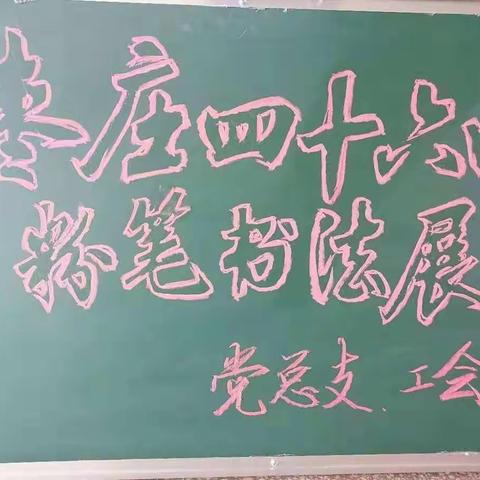 枣庄四十六
粉笔书法展
党总支、工会